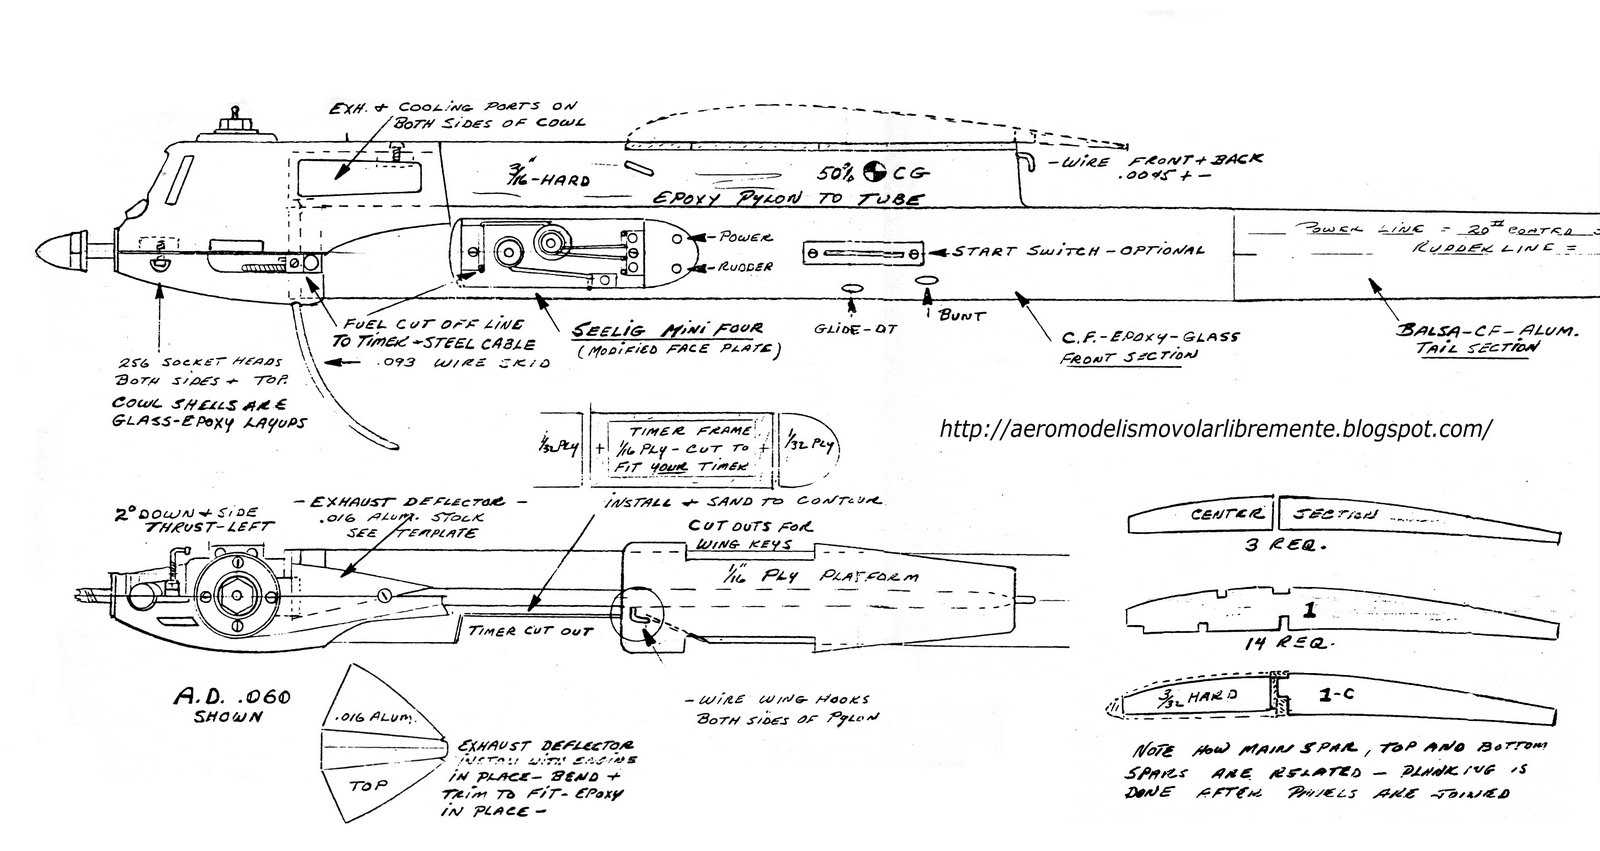 EXH. & COOLING PORTS ON
BOTH SIDES OF COWL
3/16"-HARD
50% CG
EPOXY PYLON TO TUBE
-WIRE FRONT + BACK
.0045 + -
POWER LINE = 20 II COATED =
RUDDER LINE =
-POWER
-RUDDER
START SWITCH-OPTIONAL
GLIDE-DT
BUNT
FUEL CUT OFF LINE
TO TIMER - STEEL CABLE
.093 WIRE SKID
SEELIG MINI FOUR
(MODIFIED FACE PLATE)
C.F.-EPOXY-GLASS
FRONT SECTION
BALSA-CF-ALUM.
TAIL SECTION
256 SOCKET HEADS
BOTH SIDES + TOP.
COWL SHELLS ARE
GLASS-EPOXY LAYUPS
1/32 PLY
TIMER FRAME
1/16 PLY-CUT TO
FIT YOUR TIMER
1/32 PLY
http://aeromodelismovolarlibremente.blogspot.com/
INSTALL + SAND TO CONTOUR
-EXHAUST DEFLECTOR-
.016 ALUM. STOCK
SEE TEMPLATE
2° DOWN & SIDE
THRUST-LEFT
CUT OUTS FOR
WING KEYS
1/16" PLY PLATFORM
TIMER CUT OUT
CENTER SECTION
3 REQ.
1
14 REQ.
3/32 HARD
1-C
A.D. .060
SHOWN
.016 ALUM.
TOP
EXHAUST DEFLECTOR
INSTALL WITH ENGINE
IN PLACE- BEND +
TRIM TO FIT-EPOXY
IN PLACE-
-WIRE WING HOOKS
BOTH SIDES OF PYLON
NOTE HOW MAIN SPAR, TOP AND BOTTOM
SPARS ARE RELATED - PLANKING IS
DONE AFTER PANELS ARE JOINED